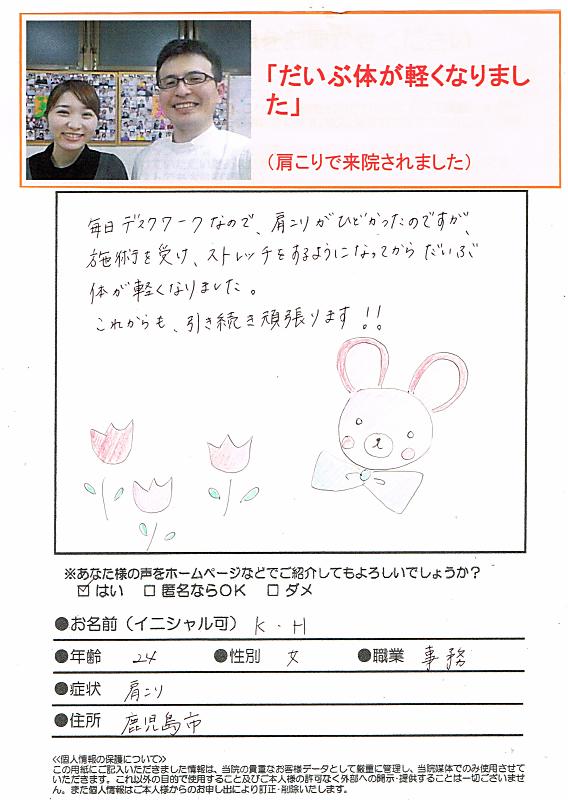 「だいぶ体が軽くなりまし
た」
（肩こりで来院されました）
毎日デスクワークなので、肩こりがひどかったのですが、
施術を受け、ストレッチをするようになってからだいぶ
体が軽くなりました。
これからも、引き続き頑張ります!!
※あなた様の声をホームページなどでご紹介してもよろしいでしょうか？
☑ はい □ 匿名ならOK □ ダメ
●お名前（イニシャル可） K・H
●年齢 24 ●性別 女 ●職業 事務
●症状 肩こり
●住所 鹿児島市
≪個人情報の保護について≫
この用紙にご記入いただきました情報は、当院の貴重なお客様データとして厳重に管理し、当院媒体でのみ使用させて
いただきます。これ以外の目的で使用すること及びご本人様の許可なく外部への開示・提供することは一切ございませ
ん。また個人情報はご本人様からのお申し出により訂正・削除いたします。